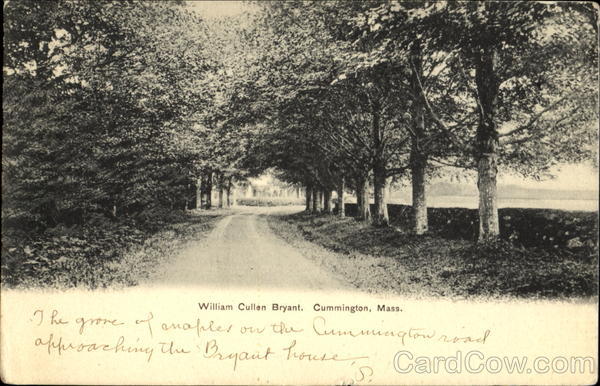 William Cullen Bryant. Cummington, Mass.
The grove of maples on the Cummington road
approaching the Bryant house
S.
CardCow.com